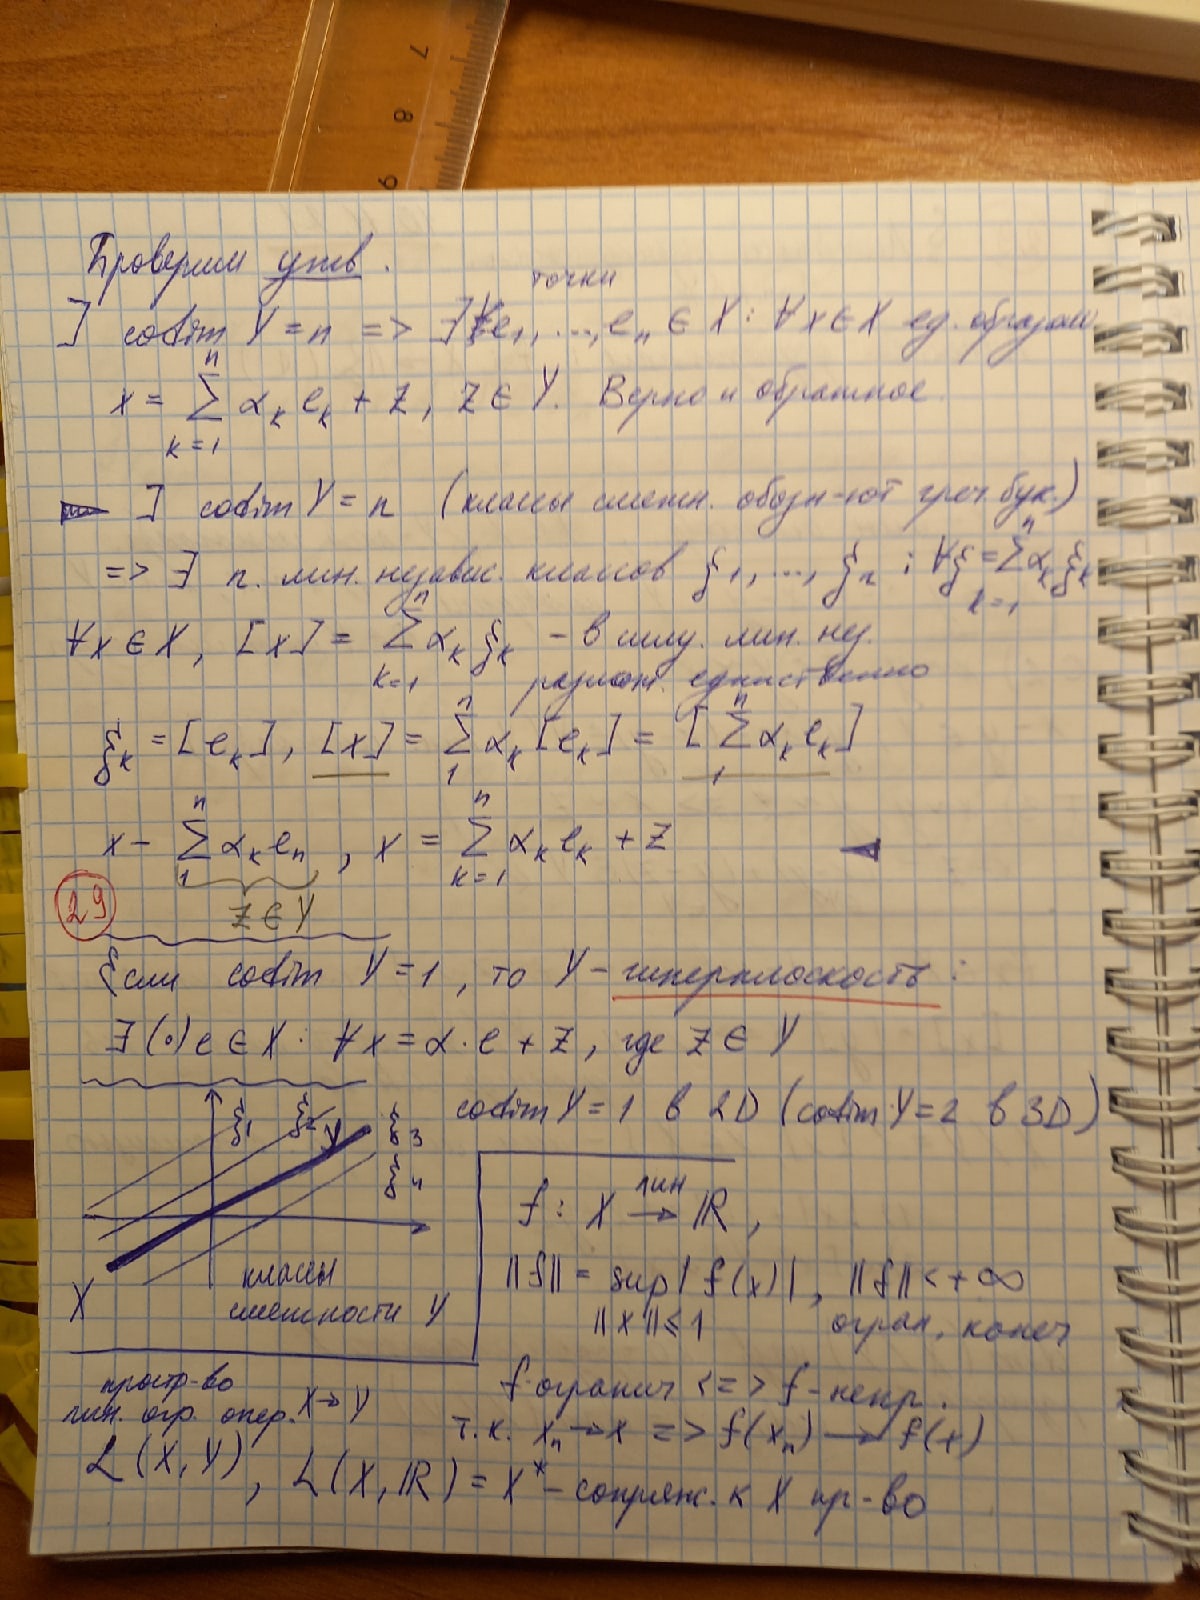 7
8
9
Проверим утв.
точки
] codim Y = n => ∃ e₁, ..., eₙ ∈ X : ∀x ∈ X ед. образом
x = ∑ₖ₌₁ⁿ αₖ eₖ + z, z ∈ Y. Верно и обратное.
] codim Y = n (классы смежн. обозн-ют греч. бук.)
=> ∃ n. лин. независ. классов ξ₁, ..., ξₙ : ∀ξ = ∑ₖ₌₁ⁿ αₖ ξₖ
∀x ∈ X, [x] = ∑ₖ₌₁ⁿ αₖ ξₖ – в силу. лин. нз.
разлож. единственно
ξₖ = [eₖ], [x] = ∑₁ⁿ αₖ [eₖ] = [∑₁ⁿ αₖ eₖ]
x – ∑₁ⁿ αₖ eₙ, x = ∑ₖ₌₁ⁿ αₖ eₖ + z
z ∈ Y
29
Если codim Y = 1, то Y – гиперплоскость:
∃ (·) e ∈ X : ∀x = α · e + z, где z ∈ Y
codim Y = 1 в 2D (codim Y = 2 в 3D)
ξ₁ ξ₂ Y ξ₃
ξ₄
X
классы
смежности Y
f : X →лин ℝ,
||f|| = sup |f(x)|, ||f|| < +∞
||x|| ⩽ 1 огран. конеч
f огранич <=> f – непр.
т.к. xₙ → x => f(xₙ) → f(x)
простр-во
лин. огр. опер. X → Y
L(X, Y), L(X, ℝ) = X* – сопряж. к X пр-во